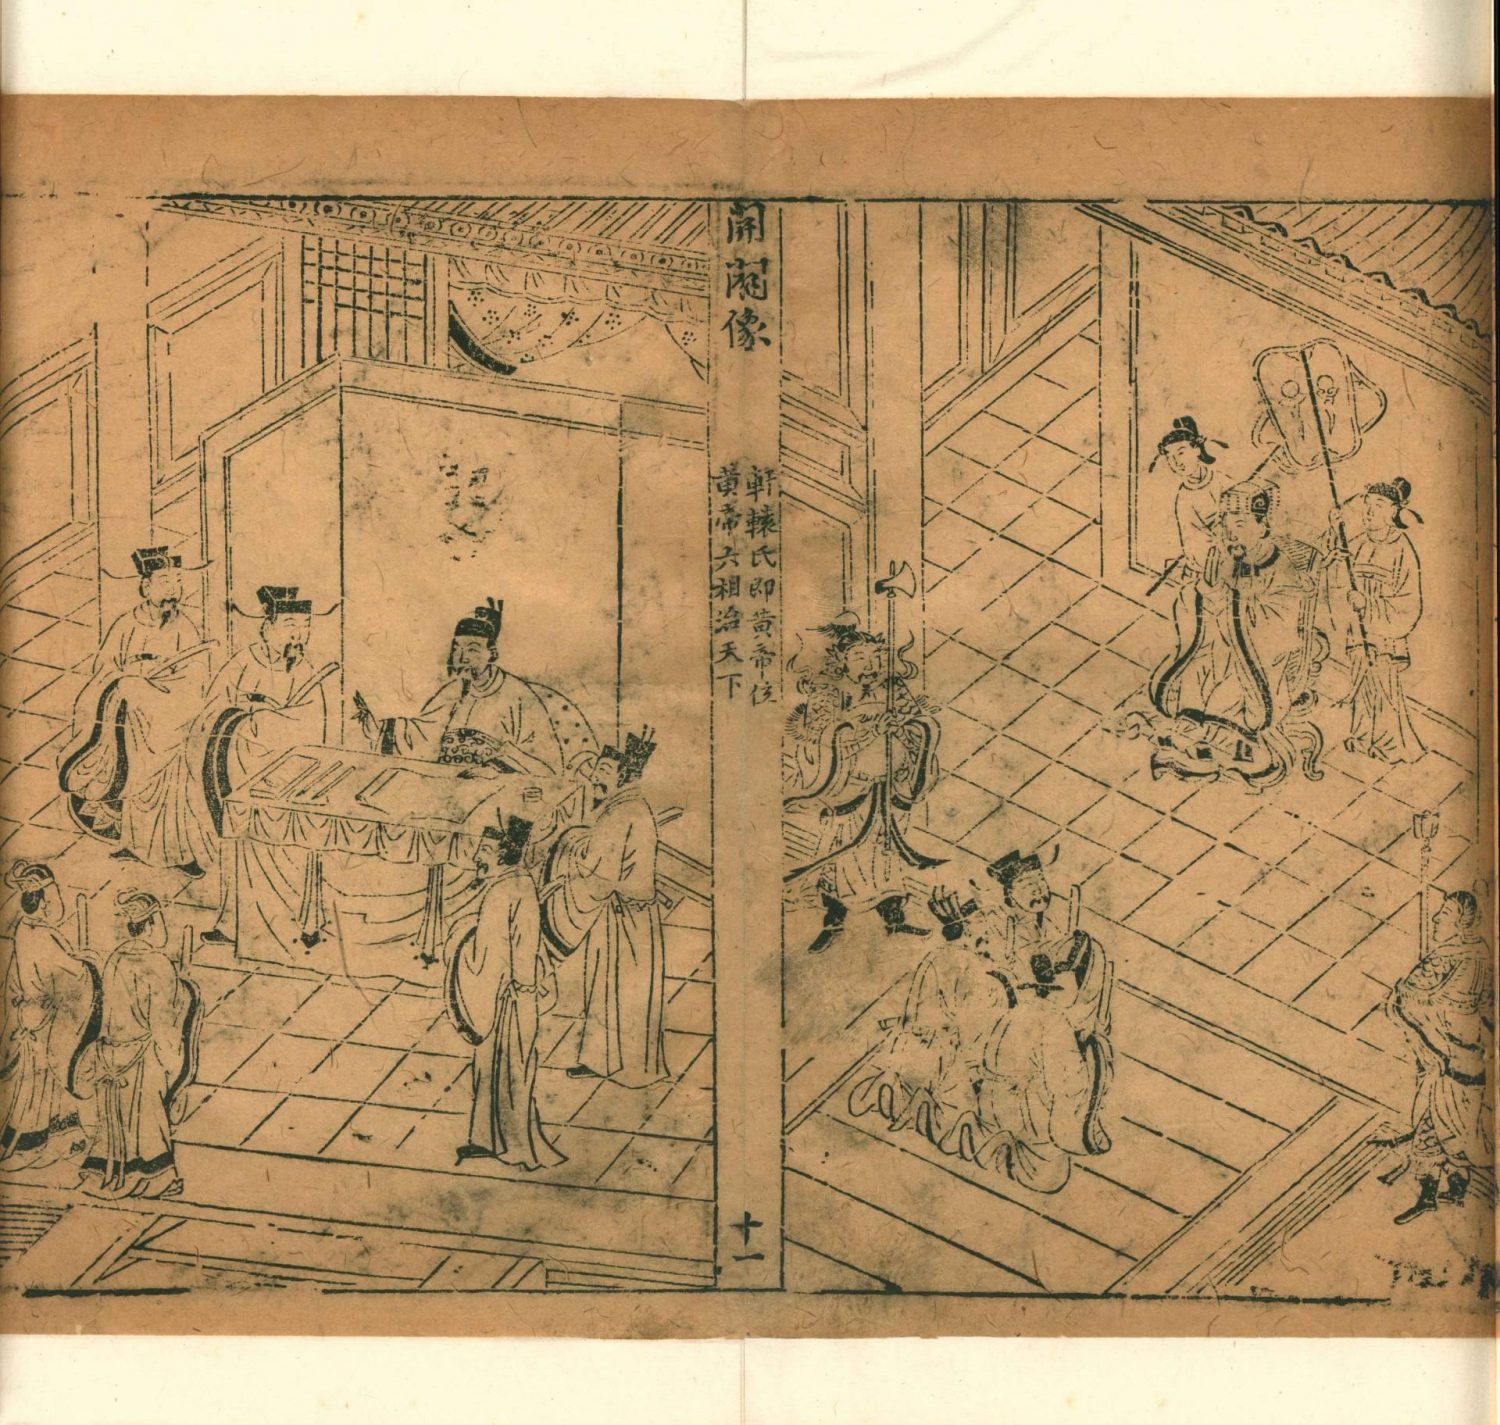 開闢像
軒轅氏即黄帝位
黄帝六相治天下
十一